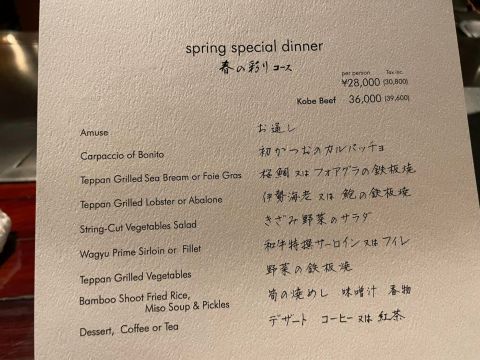 spring special dinner
春の彩りコース
per person Tax inc.
¥28,000 (30,800)
Kobe Beef 36,000 (39,600)
Amuse お通し
Carpaccio of Bonito 初かつおのカルパッチョ
Teppan Grilled Sea Bream or Foie Gras 桜鯛 又は フォアグラの鉄板焼
Teppan Grilled Lobster or Abalone 伊勢海老 又は 鮑の鉄板焼
String-Cut Vegetables Salad きざみ野菜のサラダ
Wagyu Prime Sirloin or Fillet 和牛特撰サーロイン又はフィレ
Teppan Grilled Vegetables 野菜の鉄板焼
Bamboo Shoot Fried Rice,
Miso Soup & Pickles 筍の焼めし 味噌汁 香物
Dessert, Coffee or Tea デザート コーヒー又は紅茶